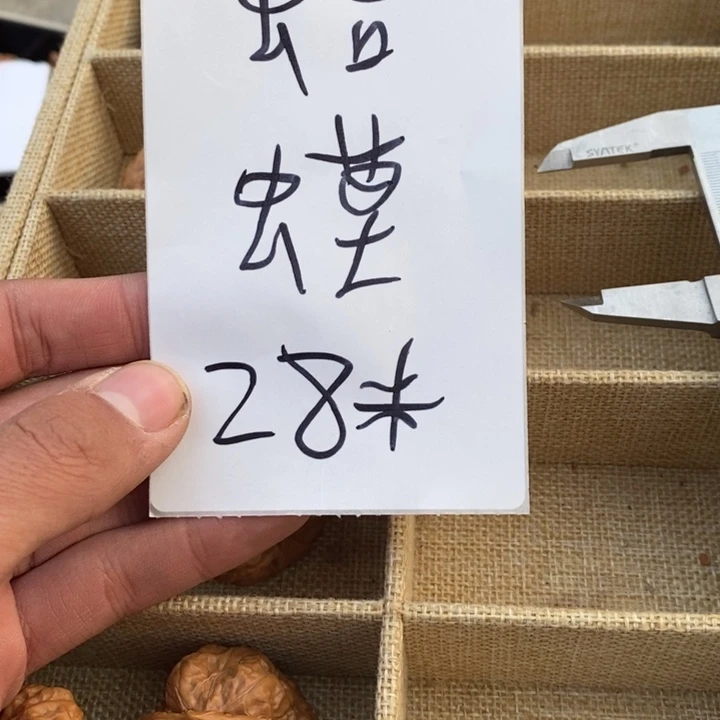 蛤
蟆
28米
SYNTEK